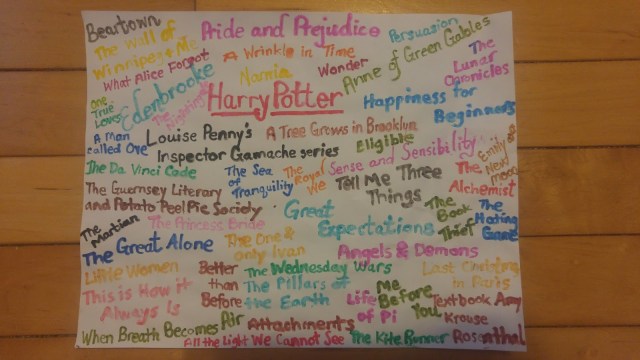 Beartown
Pride and Prejudice
Persuasion
The Wall of
Winnipeg & Me
A Wrinkle in Time
Anne of Green Gables
What Alice Forgot
Narnia
Wonder
The
Lunar
Chronicles
One
True
Loves
Edenbrooke
The
Nightingale
Harry Potter
Happiness for
Beginners
A Man
Called Ove
Louise Penny's
Inspector Gamache series
A Tree Grows in Brooklyn
Eligible
Sense and Sensibility
Emily of
New
Moon
The Da Vinci Code
The Sea
of
Tranquility
The
Royal
We
Tell Me Three
Things
The
Alchemist
The Guernsey Literary
and Potato Peel Pie Society
Great
Expectations
The
Book
Thief
The
Hating
Game
The
Martian
The Princess Bride
The Great Alone
The One &
only Ivan
Angels & Demons
Little Women
Better
than
Before
The Wednesday Wars
The Pillars of
the Earth
Last Christmas
in Paris
This is How it
Always Is
Life
of Pi
Me
Before
You
Textbook Amy
Krouse
Rosenthal
When Breath Becomes Air
Attachments
All the Light We Cannot See
The Kite Runner